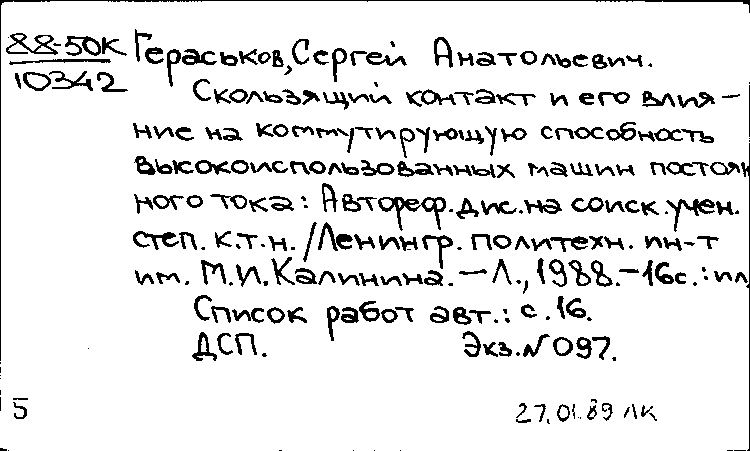 88-50К Гераськов, Сергей Анатольевич.
10342
Скользящий контакт и его влия-
ние на коммутирующую способность
высокоиспользованных машин постоян
ного тока: Автореф. дис. на соиск. учен.
степ. к.т.н. /Ленингр. политехн. ин-т
им. М.И. Калинина. - Л., 1988. - 16с.: ил
Список работ авт.: с. 16.
ДСП. Экз. N 097.
5 27.01.89 ЛК